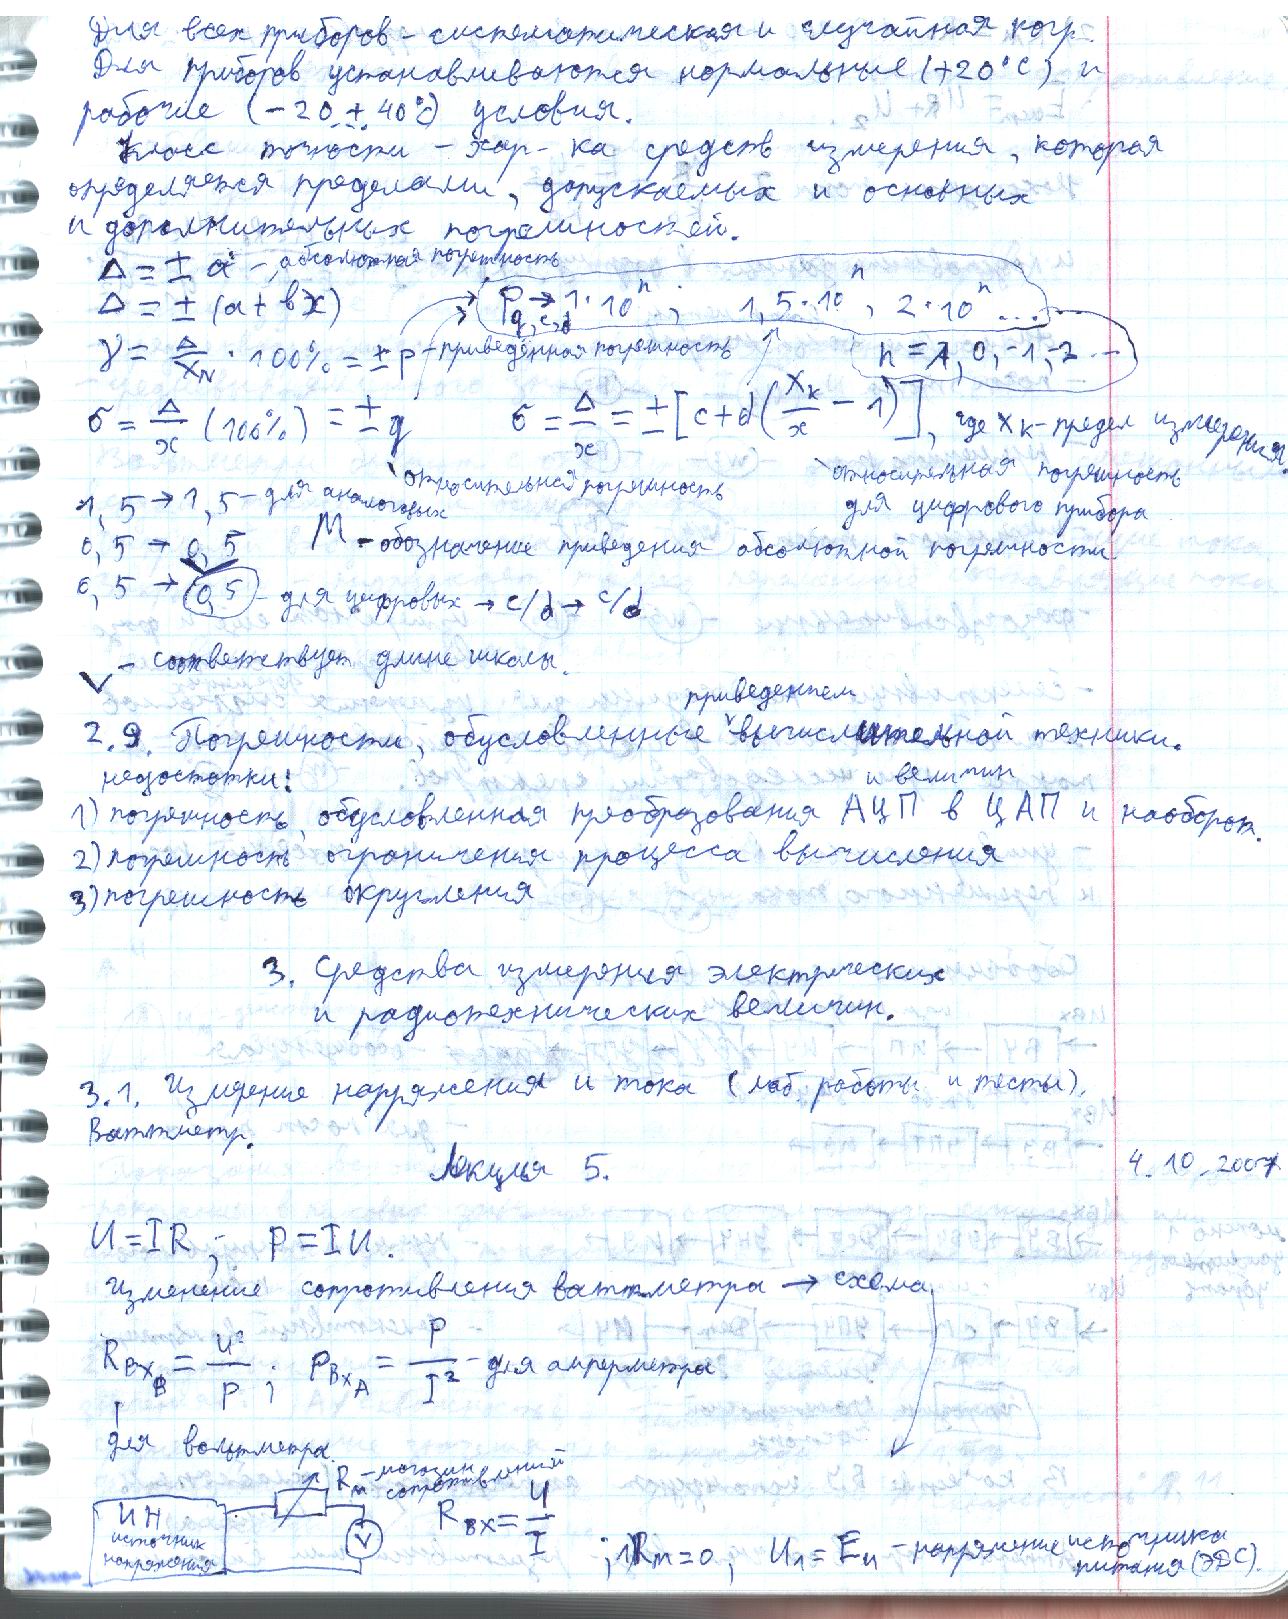 Для всех приборов - систематическая и случайная погр.
Для приборов устанавливаются нормальные (+20°C) и
рабочие (-20 ± 40°C) условия.
Класс точности - хар-ка средств измерения, которая
определяется пределами, допускаемых и основных
и дополнительных погрешностей.
Δ = ± a - абсолютная погрешность
Δ = ± (a + bx)
p → 1·10^n ; 1,5·10^n , 2·10^n ...
q, c, d
γ = Δ/x_N · 100% = ± p - приведённая погрешность
n = 1, 0, -1, -2 ...
σ = Δ/x (100%) = ± q
σ = Δ/x = ± [c + d (X_k/x - 1)] , где X_k - предел измерения.
относительная погрешность
относительная погрешность
для цифрового прибора
1,5 → 1,5 - для аналоговых
M - обозначение приведения абсолютной погрешности
0,5 → 0,5
0,5 → 0,5 - для цифровых → c/d → c/d
V - соответствует длине шкалы.
приведением
2.9. Погрешности, обусловленные вычислительной техники.
недостатки:
и величин
1) погрешность, обусловленная преобразования АЦП в ЦАП и наоборот.
2) погрешность ограничения процесса вычисления
3) погрешность округления
3. Средства измерения электрических
и радиотехнических величин.
3.1. Измерение напряжения и тока (лаб. работы и тесты).
Ваттметр.
Лекция 5.
4.10.2007
U = IR ; P = IU.
Изменение сопротивления ваттметра → схема
R_Вх_В = U²/P ; P_Вх_А = P/I² - для амперметра
для вольтметра.
R_м - магазин сопротивлений
ИН
источник
напряжения
V
R_ВХ = U/I ; 1) R_m = 0 , U_1 = E_и - напряжение источника
питания (ЭДС).